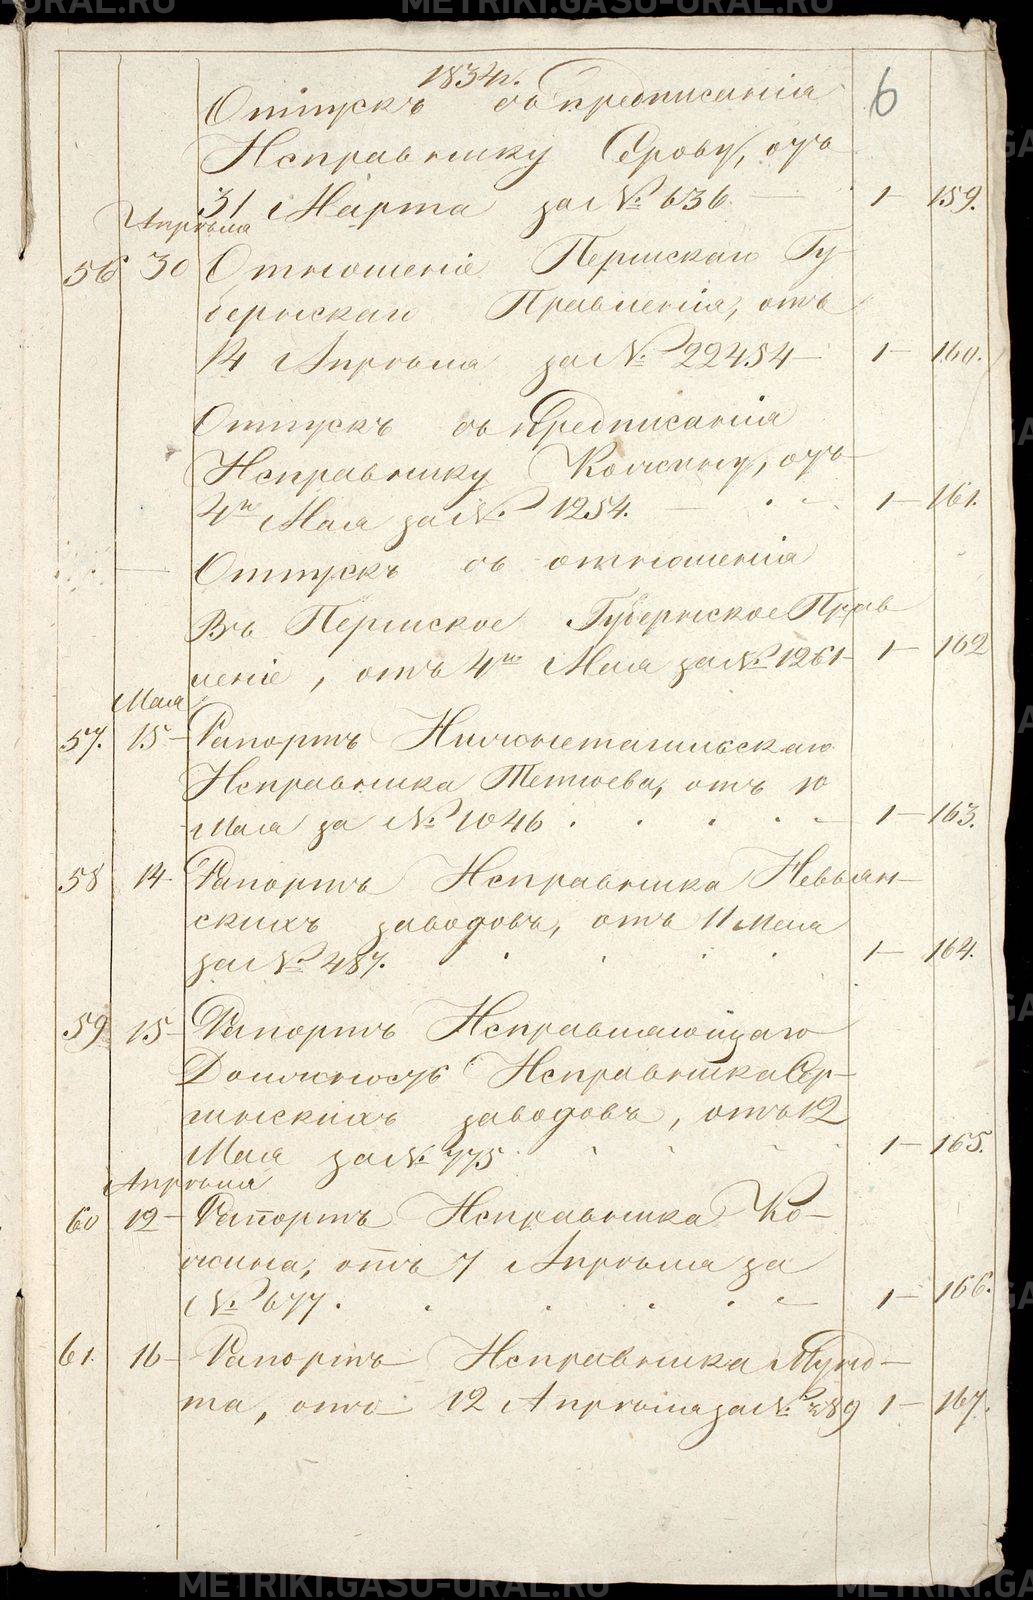 METRIKI.GASU-URAL.RU
1834 г.
6
Отпускъ съ предписанія
Исправнику Серову, отъ
31 Марта за № 636 — 1 — 159.
Апрѣля
56 30 Отношеніе Пермскаго Гу-
бернскаго Правленія, отъ
14 Апрѣля за № 22454 — 1 — 160.
Отпускъ съ предписанія
Исправнику Кожину, отъ
4го Мая за № 1254. — 1 — 161.
Отпускъ съ отношенія
Въ Пермское Губернское Прав
леніе, отъ 4го Мая за № 1261 — 1 — 162
Мая
57. 15 — Рапортъ Нижнетагильскаго
Исправника Тетюева, отъ 10
Мая за № 1046 . . . . — 1 — 163.
58 14 — Рапортъ Исправника Невьян-
скихъ заводовъ, отъ 11 Мая
за № 487. . . . . 1 — 164.
59 15 — Рапортъ Исправляющаго
Должность Исправника Сер-
гинскихъ заводовъ, отъ 12
Мая за № 775 . . . . 1 — 165.
Апрѣля
60 12 — Рапортъ Исправника Ко-
жина, отъ 7 Апрѣля за
№ 677. . . . . — 1 — 166.
61. 16 — Рапортъ Исправника
та, отъ 12 Апрѣля за № 289 1 — 167.
METRIKI.GASU-URAL.RU